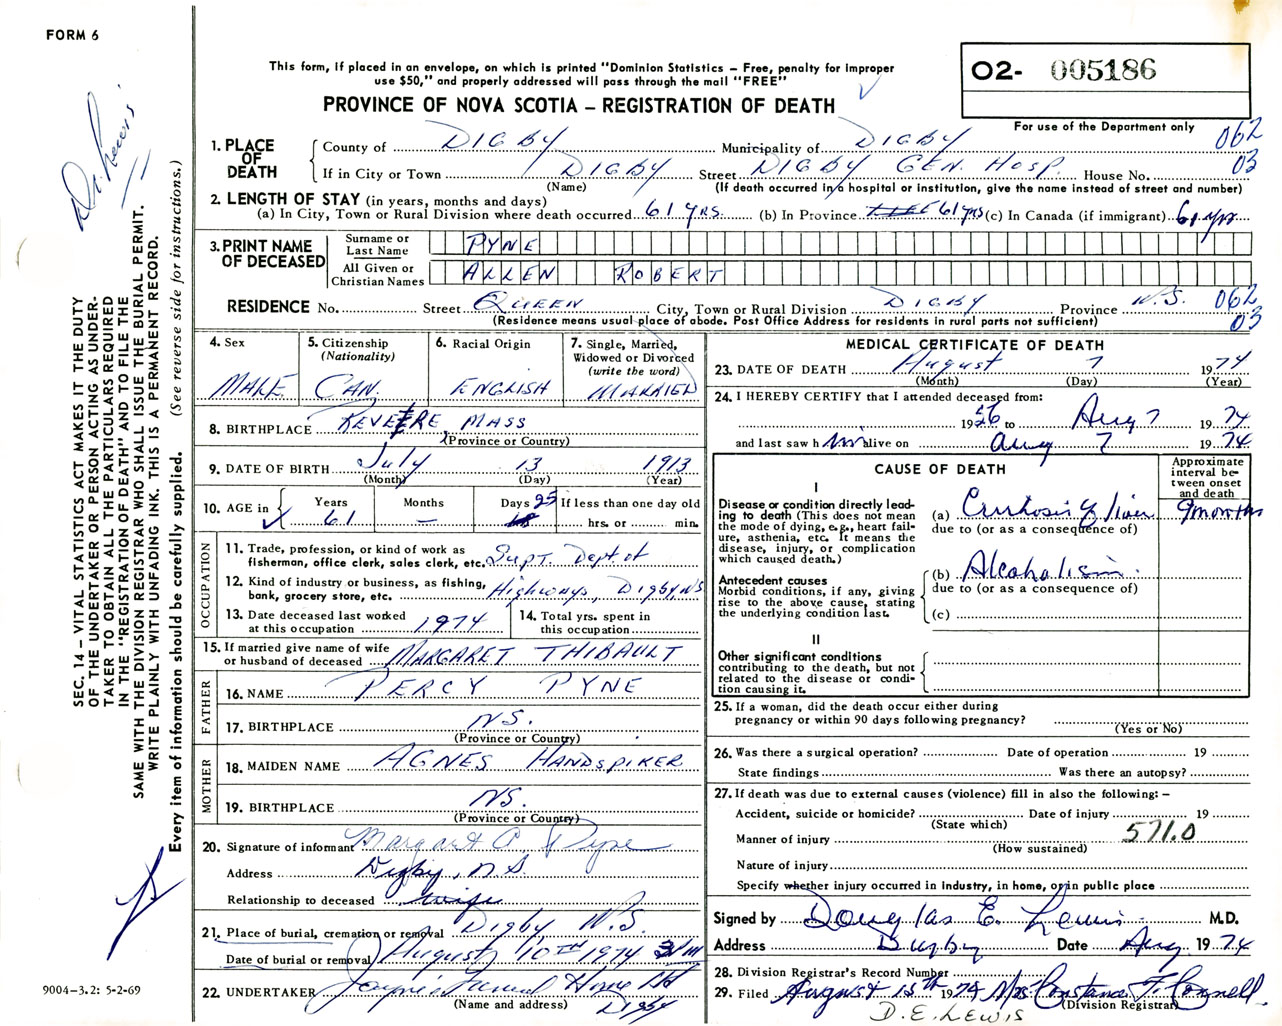 FORM 6
This form, if placed in an envelope, on which is printed "Dominion Statistics – Free, penalty for improper
use $50," and properly addressed will pass through the mail "FREE"
PROVINCE OF NOVA SCOTIA – REGISTRATION OF DEATH
O2- 005186
For use of the Department only
Dr. Lewis
SEC. 14 – VITAL STATISTICS ACT MAKES IT THE DUTY
OF THE UNDERTAKER OR PERSON ACTING AS UNDER-
TAKER TO OBTAIN ALL THE PARTICULARS REQUIRED
IN THE "REGISTRATION OF DEATH" AND TO FILE THE
SAME WITH THE DIVISION REGISTRAR WHO SHALL ISSUE THE BURIAL PERMIT.
WRITE PLAINLY WITH UNFADING INK. THIS IS A PERMANENT RECORD.
Every item of information should be carefully supplied. (See reverse side for instructions.)
1. PLACE OF DEATH
County of DIGBY Municipality of DIGBY 062
If in City or Town DIGBY Street DIGBY GEN. HOSP. House No. 03
(Name) (If death occurred in a hospital or institution, give the name instead of street and number)
2. LENGTH OF STAY (in years, months and days)
(a) In City, Town or Rural Division where death occurred 61 yrs. (b) In Province 61 yrs (c) In Canada (if immigrant) 61 yrs
3. PRINT NAME OF DECEASED
Surname or Last Name PYNE
All Given or Christian Names ALLEN ROBERT
RESIDENCE No. Street QUEEN City, Town or Rural Division DIGBY Province N.S. 062
03
(Residence means usual place of abode. Post Office Address for residents in rural parts not sufficient)
4. Sex MALE
5. Citizenship (Nationality) CAN.
6. Racial Origin ENGLISH
7. Single, Married, Widowed or Divorced (write the word) MARRIED
8. BIRTHPLACE REVERE MASS
(Province or Country)
9. DATE OF BIRTH July 13 1913
(Month) (Day) (Year)
10. AGE in Years 61 Months – Days 25 If less than one day old
hrs. or min.
OCCUPATION
11. Trade, profession, or kind of work as
fisherman, office clerk, sales clerk, etc. Supt. Dept of
12. Kind of industry or business, as fishing,
bank, grocery store, etc. Highways, Digby, N.S
13. Date deceased last worked
at this occupation 1974
14. Total yrs. spent in
this occupation
15. If married give name of wife
or husband of deceased MARGARET THIBAULT
FATHER
16. NAME PERCY PYNE
17. BIRTHPLACE N.S.
(Province or Country)
MOTHER
18. MAIDEN NAME AGNES HANDSPIKER
19. BIRTHPLACE N.S.
(Province or Country)
20. Signature of informant Margaret A Pyne
Address Digby, N.S.
Relationship to deceased wife
21. Place of burial, cremation or removal Digby N.S.
Date of burial or removal August 10TH 1974
22. UNDERTAKER Jayne's Funeral Home Ltd
(Name and address) Digby
9004-3.2: 5-2-69
MEDICAL CERTIFICATE OF DEATH
23. DATE OF DEATH August 7 1974
(Month) (Day) (Year)
24. I HEREBY CERTIFY that I attended deceased from:
1956 to Aug 7 1974
and last saw him alive on Aug 7 1974
CAUSE OF DEATH
Approximate interval between onset and death
I
Disease or condition directly lead-
ing to death (This does not
mean the mode of dying, e.g., heart fail-
ure, asthenia, etc. It means the
disease, injury, or complication
which caused death.)
(a) Cirrhosis of liver 9 months
due to (or as a consequence of)
Antecedent causes
Morbid conditions, if any, giving
rise to the above cause, stating
the underlying condition last.
(b) Alcoholism.
due to (or as a consequence of)
(c)
II
Other significant conditions
contributing to the death, but not
related to the disease or condi-
tion causing it.
25. If a woman, did the death occur either during
pregnancy or within 90 days following pregnancy?
(Yes or No)
26. Was there a surgical operation? Date of operation 19
State findings Was there an autopsy?
27. If death was due to external causes (violence) fill in also the following: –
Accident, suicide or homicide? Date of injury 19
(State which)
571.0
Manner of injury
(How sustained)
Nature of injury
Specify whether injury occurred in industry, in home, or in public place
Signed by Douglas E. Lewis M.D.
Address Digby Date Aug. 1974
28. Division Registrar's Record Number
29. Filed August 15th 1974 Mrs. Constance F. Connell
(Division Registrar)
D.E. LEWIS